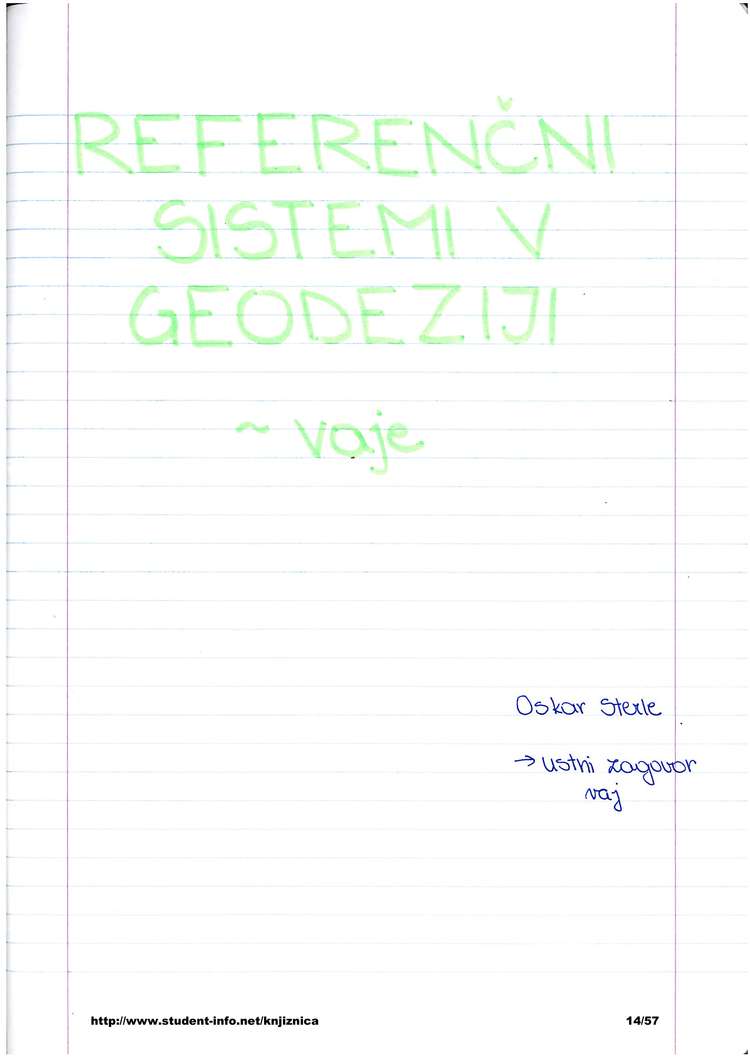 REFERENČNI
SISTEMI V
GEODEZIJI
~ vaje
Oskar Sterle
→ ustni zagovor
vaj
http://www.student-info.net/knjiznica 14/57